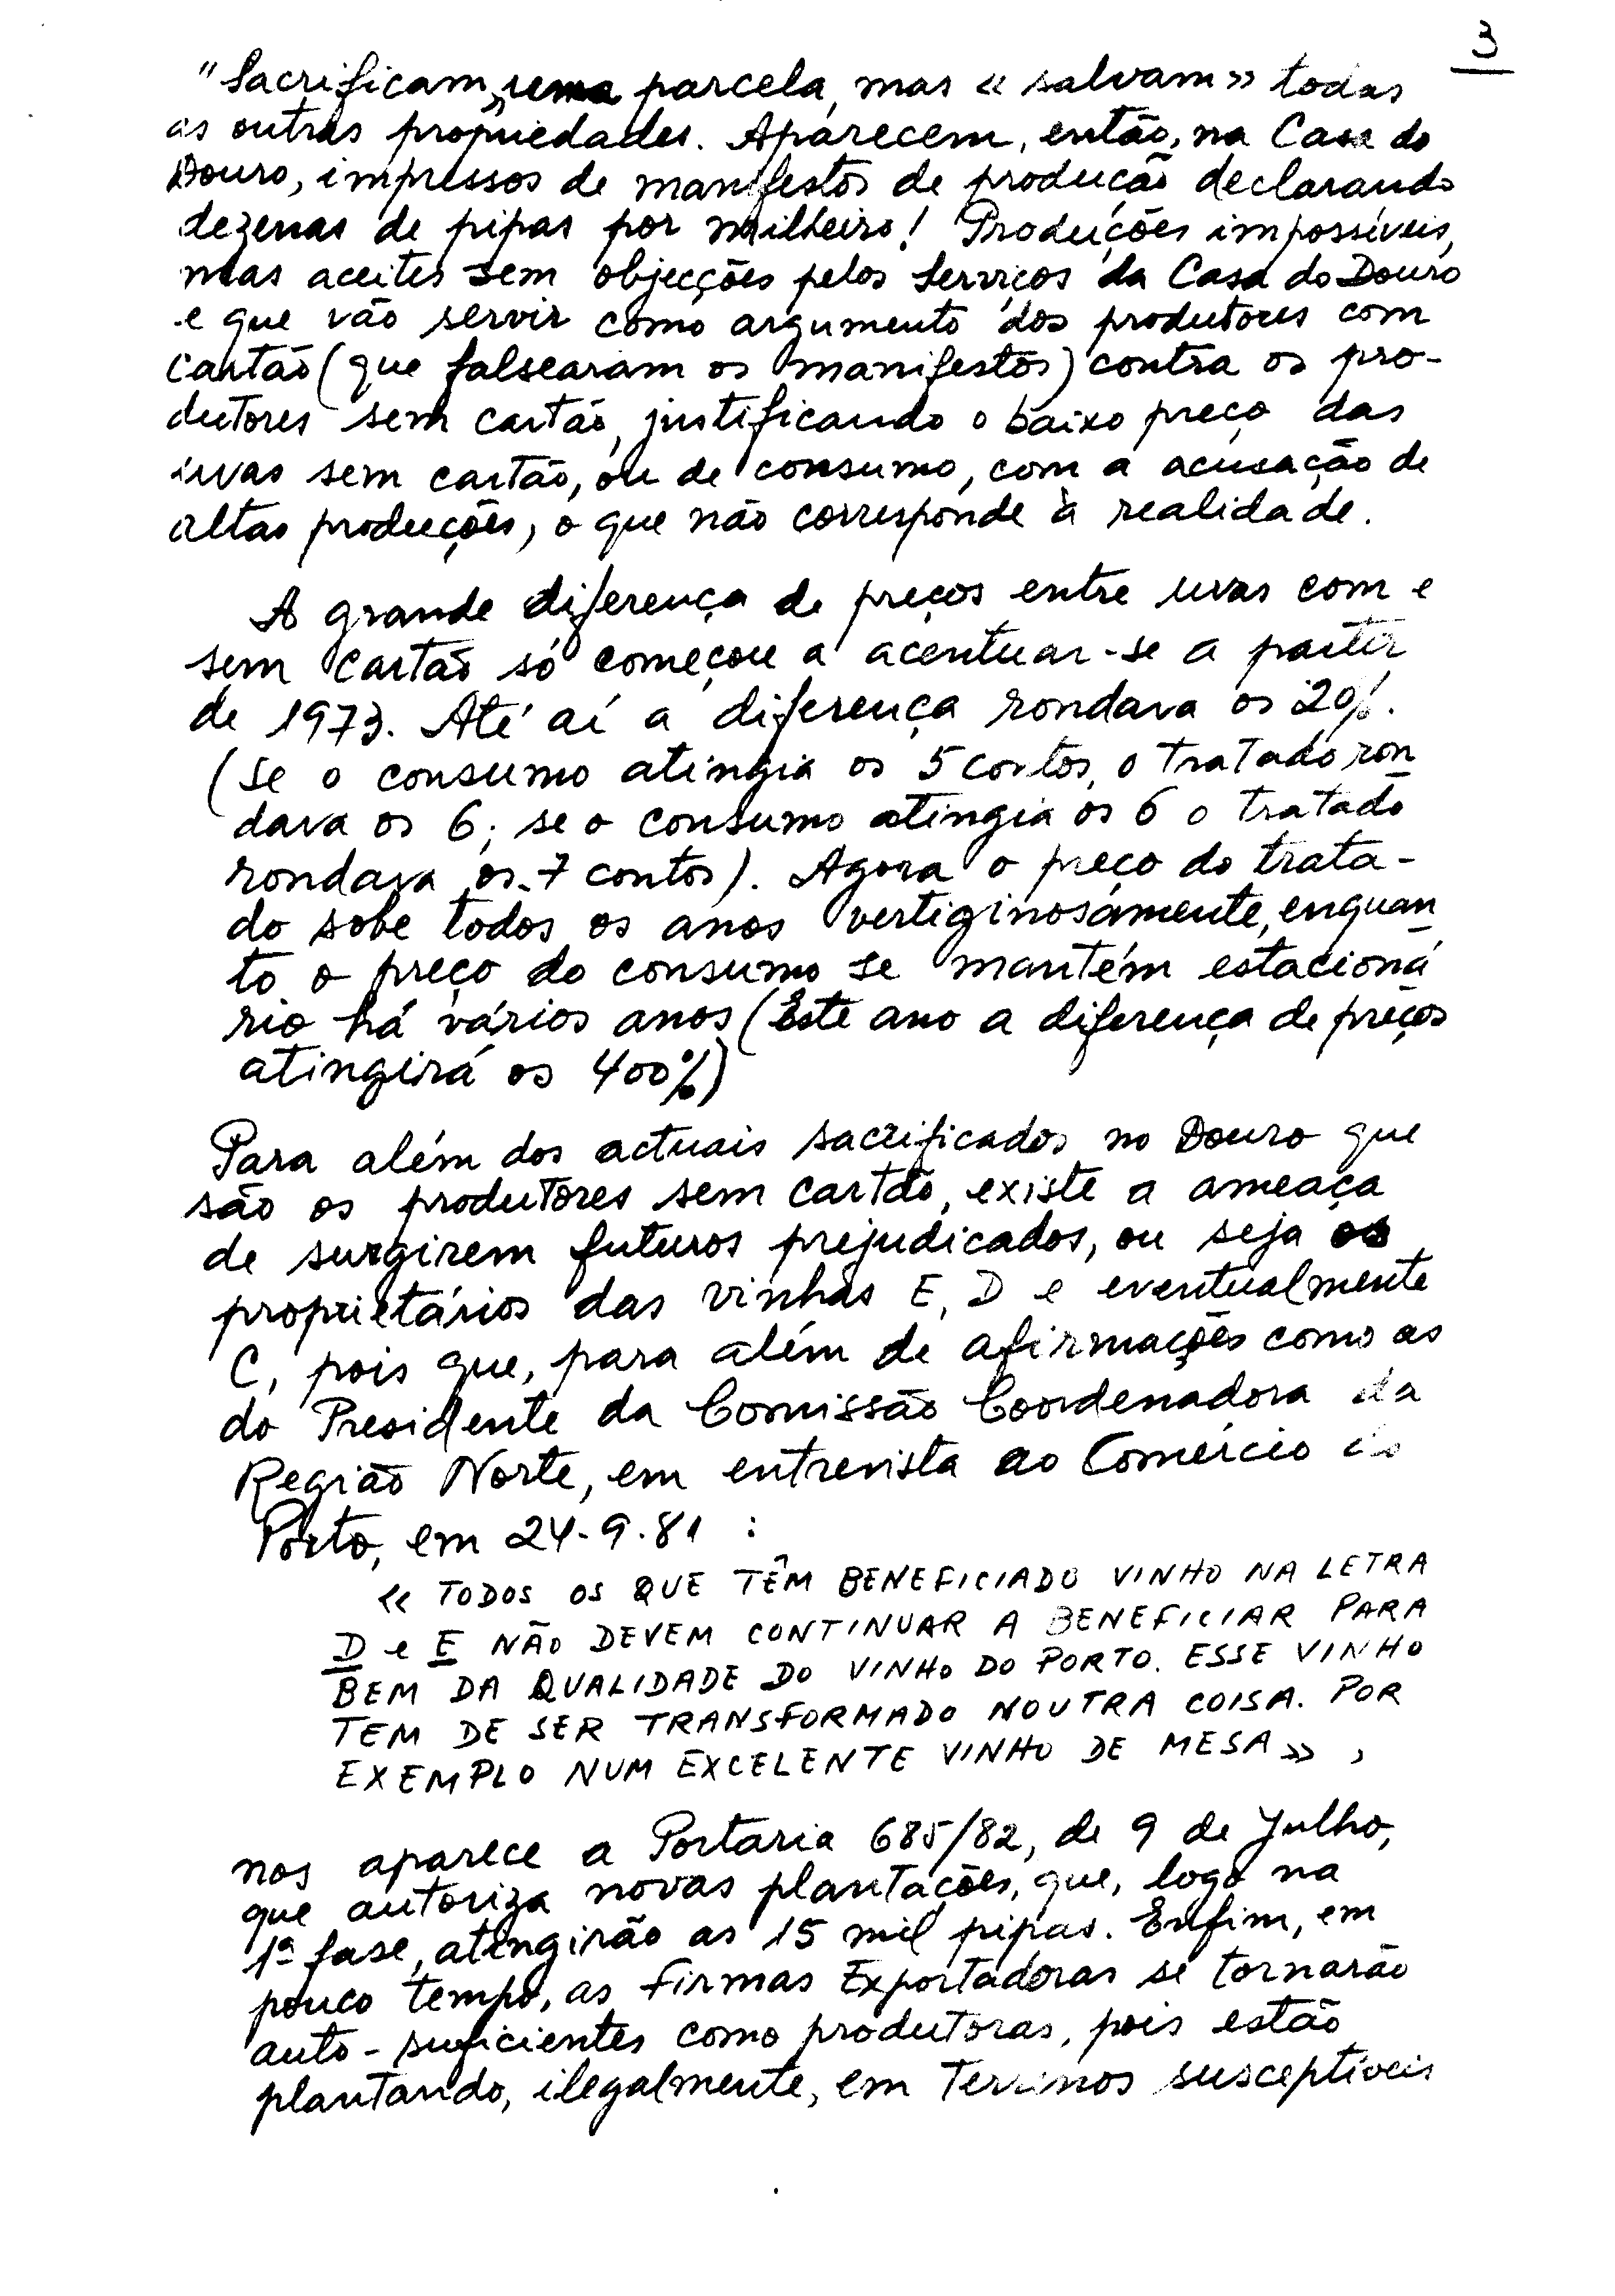 3
"Sacrificam" uma parcela, mas « salvam » todas
as outras propriedades. Aparecem, então, na Casa do
Douro, impressos de manifestos de produção declarando
dezenas de pipas por milheiro! Produções impossíveis,
mas aceites sem objecções pelos Serviços da Casa do Douro
e que vão servir como argumento dos produtores com
cartão (que falsearam os manifestos) contra os pro-
dutores sem cartão, justificando o baixo preço das
uvas sem cartão, ou de consumo, com a acusação de
altas produções, o que não corresponde à realidade.
A grande diferença de preços entre uvas com e
sem cartão só começou a acentuar-se a partir
de 1973. Até aí a diferença rondava os 20%.
(Se o consumo atingia os 5 contos, o tratado ron
dava os 6; se o consumo atingia os 6 o tratado
rondava os 7 contos). Agora o preço do trata-
do sobe todos os anos vertiginosamente, enquan
to o preço do consumo se mantém estacioná
rio há vários anos (Este ano a diferença de preços
atingirá os 400%)
Para além dos actuais sacrificados no Douro que
são os produtores sem cartão, existe a ameaça
de surgirem futuros prejudicados, ou seja os
proprietários das vinhas E, D e eventualmente
C, pois que, para além de afirmações como as
do Presidente da Comissão Coordenadora da
Região Norte, em entrevista ao Comércio do
Porto, em 24.9.81 :
« TODOS OS QUE TÊM BENEFICIADO VINHO NA LETRA
D e E NÃO DEVEM CONTINUAR A BENEFICIAR PARA
BEM DA QUALIDADE DO VINHO DO PORTO. ESSE VINHO
TEM DE SER TRANSFORMADO NOUTRA COISA. POR
EXEMPLO NUM EXCELENTE VINHO DE MESA » ,
nos aparece a Portaria 685/82, de 9 de Julho,
que autoriza novas plantações, que, logo na
1ª fase, atingirão as 15 mil pipas. Enfim, em
pouco tempo, as Firmas Exportadoras se tornarão
auto-suficientes como produtoras, pois estão
plantando, ilegalmente, em Terrenos susceptíveis